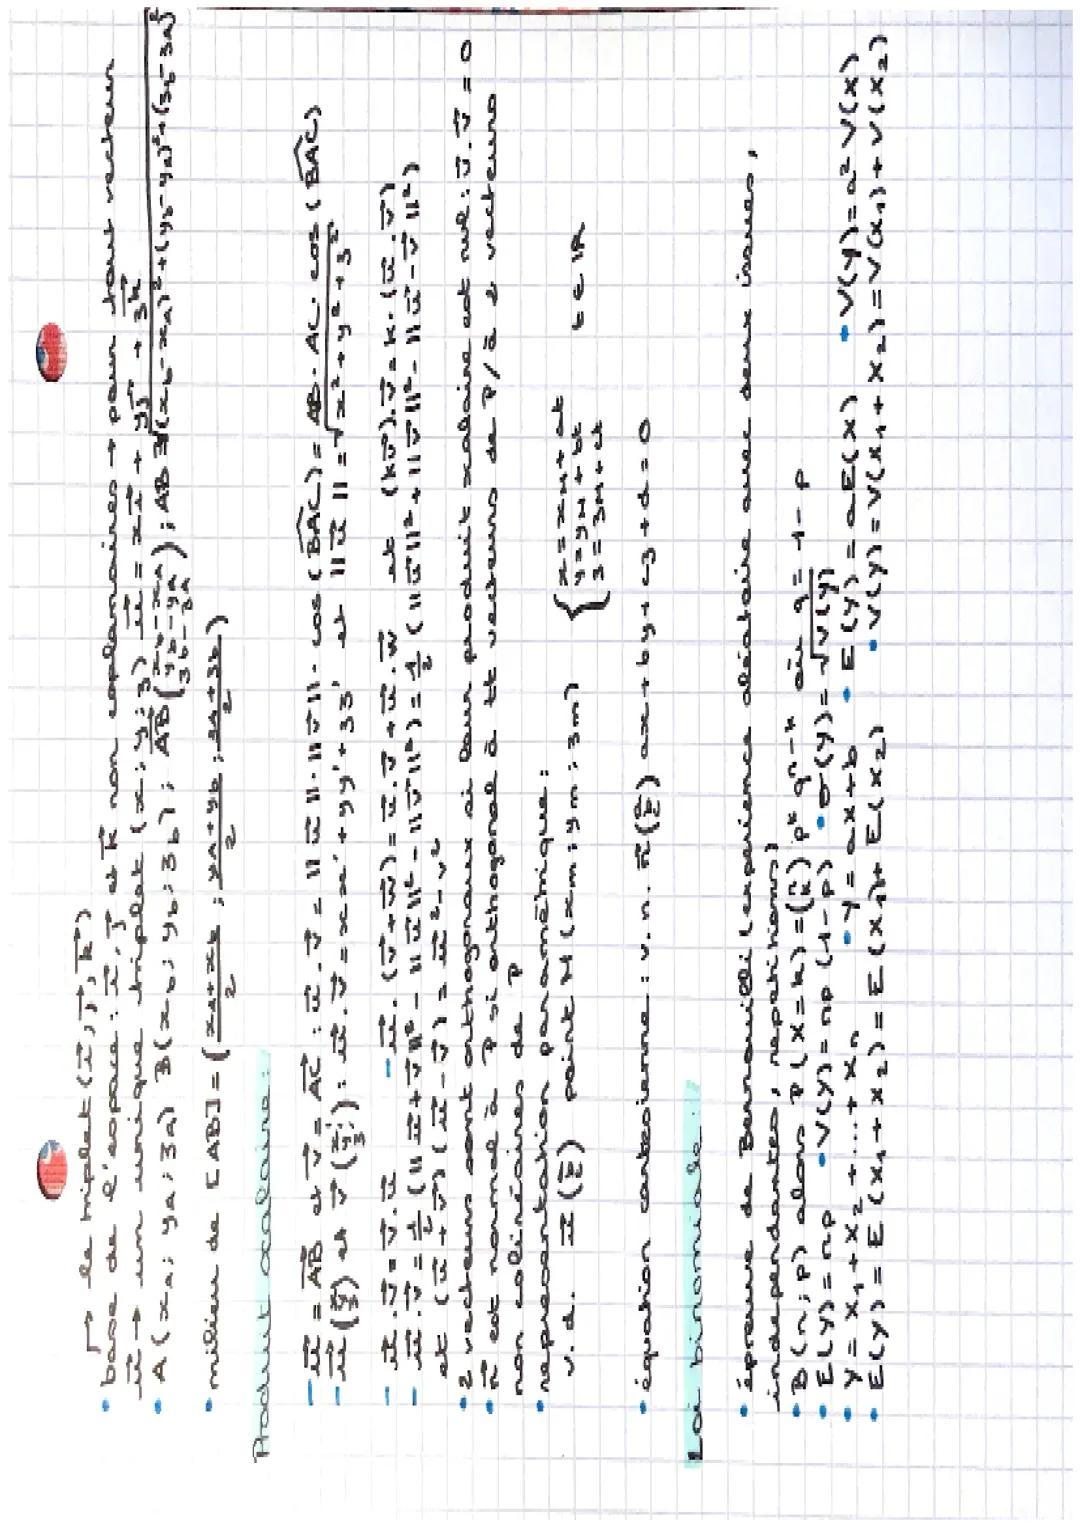 ↱ le triplet (i⃗, j⃗, k⃗)
• base de l'espace : i⃗, j⃗ et k⃗ non coplanaires → pour tout vecteur
u⃗ → un unique triplet (x; y; z) u⃗ = xi⃗ + yj⃗ + zk⃗
• A(xa; ya; za) B(xb; yb; zb); AB⃗ (xb - xa / yb - ya / zb - za); AB = √((xb - xa)² + (yb - ya)² + (zb - za)²)
• milieu de [AB] = (xa + xb / 2 ; ya + yb / 2 ; za + zb / 2)
Produit scalaire :
- u⃗ = AB⃗ et v⃗ = AC⃗ : u⃗.v⃗ = ||u⃗||.||v⃗||. cos(BAC) = AB. AC. cos(BAC)
- u⃗ (x y z) et v⃗ (x' y' z') : u⃗.v⃗ = xx' + yy' + zz' et ||u⃗|| = √(x² + y² + z²)
- u⃗.v⃗ = v⃗.u⃗ - u⃗.(v⃗ + w⃗) = u⃗.v⃗ + u⃗.w⃗ et (ku⃗).v⃗ = k.(u⃗.v⃗)
- u⃗.v⃗ = 1/2 (||u⃗ + v⃗||² - ||u⃗||² - ||v⃗||²) = 1/2 (||u⃗||² + ||v⃗||² - ||u⃗ - v⃗||²)
et (u⃗ + v⃗)(u⃗ - v⃗) = u⃗² - v²
• 2 vecteurs sont orthogonaux si leur produit scalaire est nul : u⃗.v⃗ = 0
• n⃗ est normal à P si orthogonal à tt vecteurs de P/à 2 vecteurs
non colinéaires de P
• représentation paramétrique :
v.d. u⃗ (a b c) point M (xm; ym; zm) { x = xM + at
y = yM + bt
z = zM + ct t ∈ ℝ
• équation cartésienne : v.n. n⃗ (a b c) ax + by + cz + d = 0
Loi binomiale :
• épreuve de Bernouilli (expérience aléatoire avec deux issues,
indépendantes, répétitions)
• B(n; p) alors P(X = k) = (n k) p^k q^(n-k) où q = 1 - p
• E(y) = np • V(y) = np(1-p) • σ(y) = √V(y)
• Y = X₁ + X₂ + ... + Xn • Y = ax + b • E(y) = aE(x) • V(y) = a² V(x)
• E(y) = E(x₁ + x₂) = E(x₁) + E(x₂) • V(y) = V(x₁ + x₂) = V(x₁) + V(x₂)